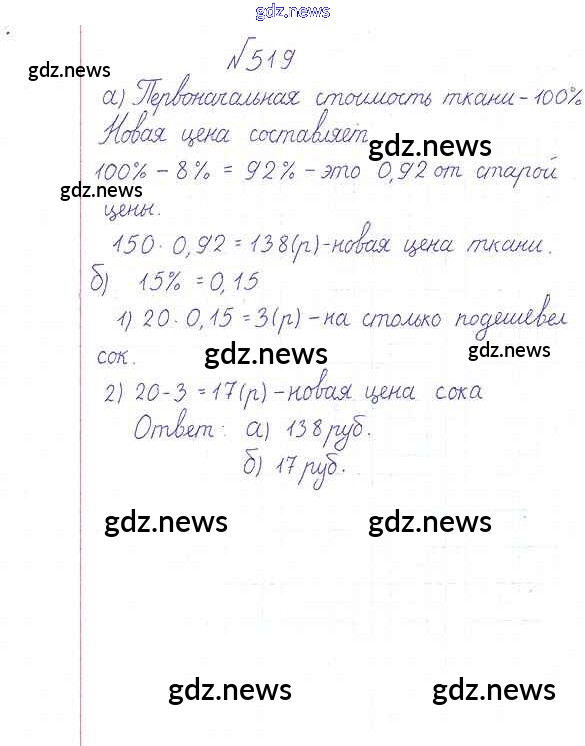 gdz.news
№519
gdz.news
а) Первоначальная стоимость ткани - 100%
Новая цена составляет
gdz.news
100% - 8% = 92% - это 0,92 от старой
gdz.news
цены.
150 · 0,92 = 138(р) - новая цена ткани.
б) 15% = 0,15
1) 20 · 0,15 = 3(р) - на столько подешевел
сок.
gdz.news
gdz.news
2) 20 - 3 = 17(р) - новая цена сока
Ответ: а) 138 руб.
б) 17 руб.
gdz.news
gdz.news
gdz.news
gdz.news